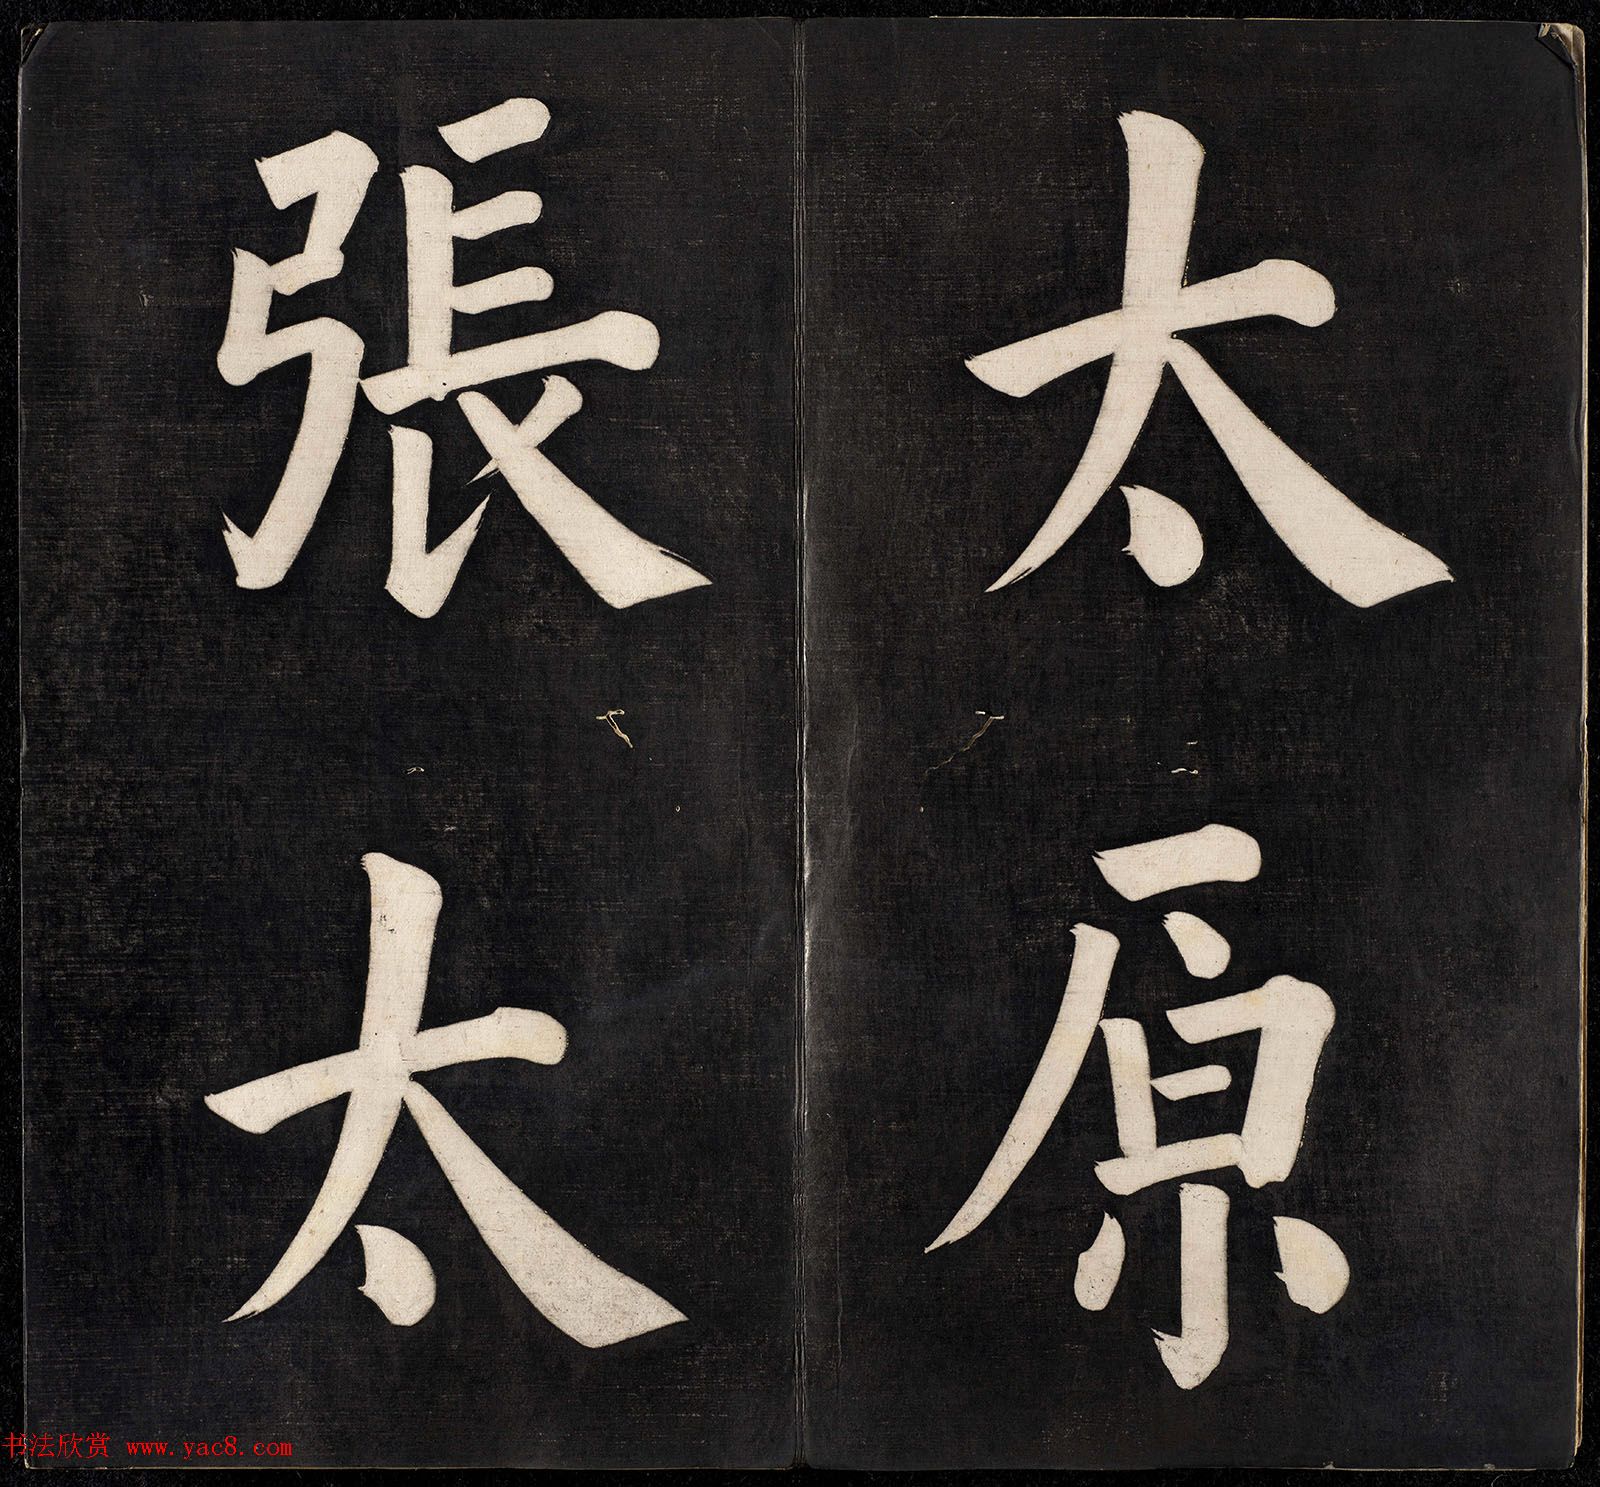 太原
張太
书法欣赏 www.yac8.com